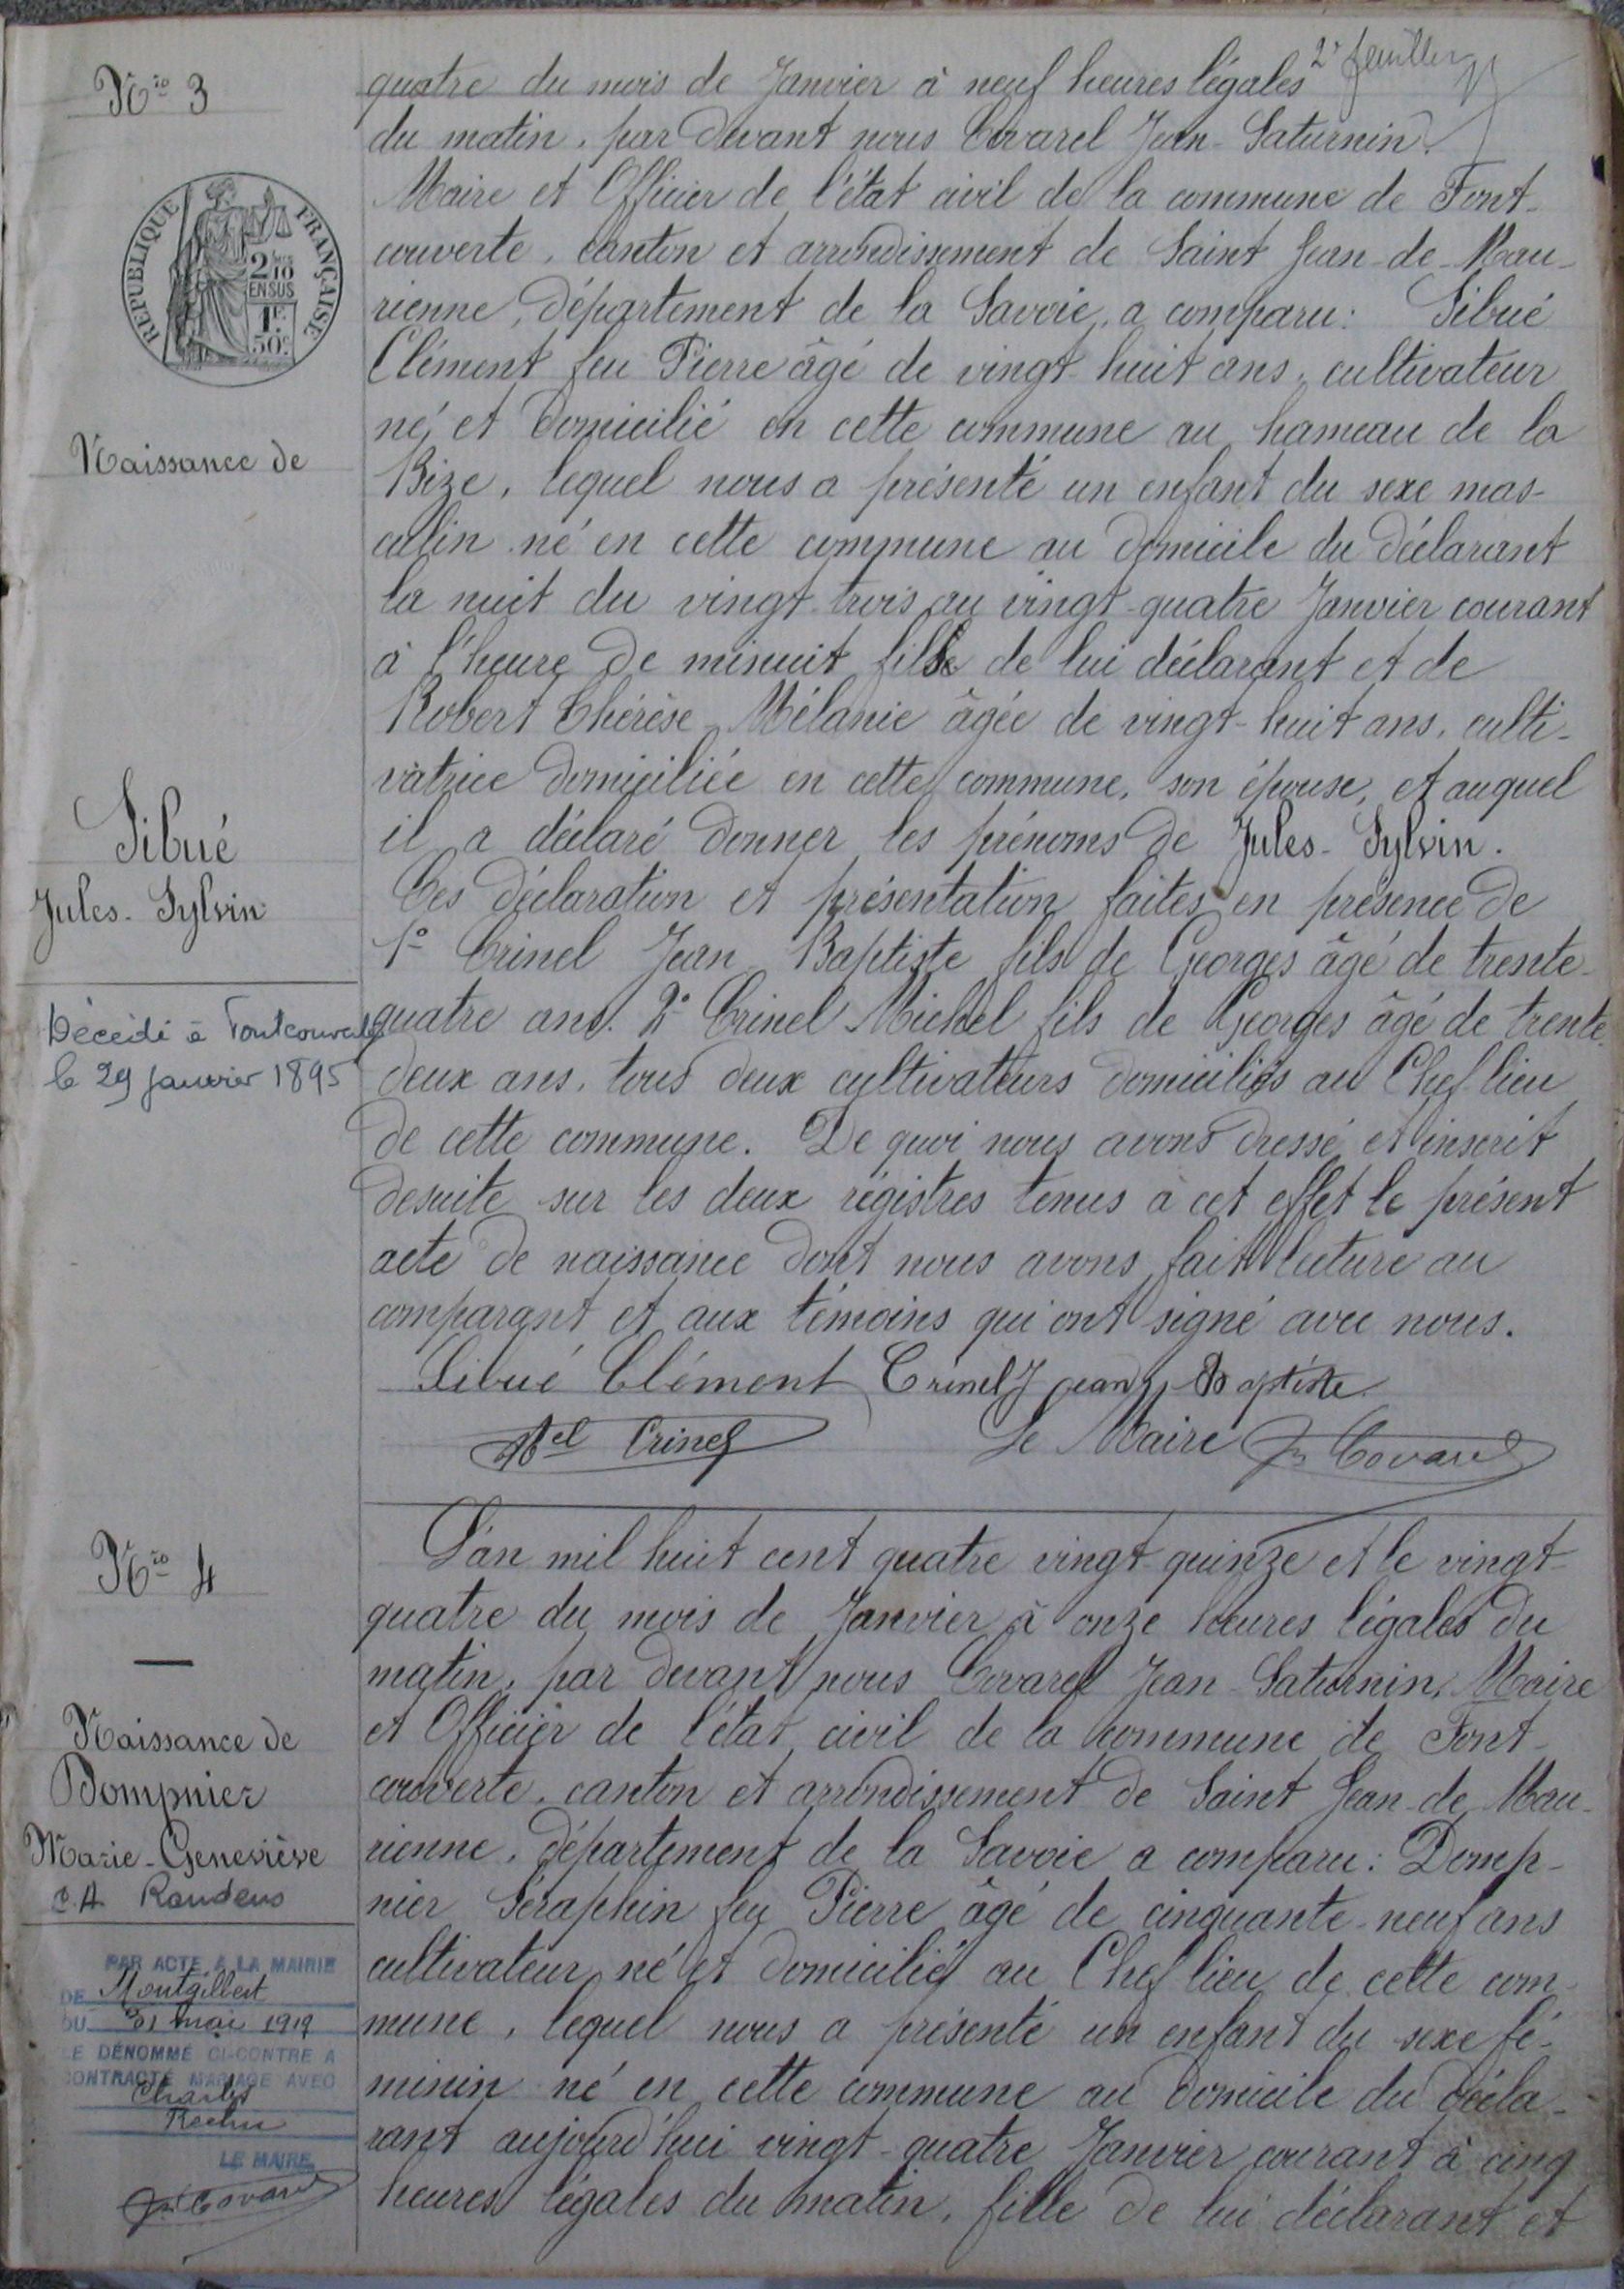 2e feuillet
Nro 3
quatre du mois de Janvier à neuf heures légales
du matin, par devant nous Covarel Jean-Saturnin,
Maire et Officier de l'état civil de la commune de Font-
couverte, canton et arrondissement de Saint Jean-de-Mau-
rienne, département de la Savoie, a comparu: Sibué
Clément feu Pierre âgé de vingt-huit ans, cultivateur
né et domicilié en cette commune au hameau de la
Bize, lequel nous a présenté un enfant du sexe mas-
culin né en cette commune au domicile du déclarant
la nuit du vingt-trois au vingt-quatre Janvier courant
à l'heure de minuit fils de lui déclarant et de
Robert Thérèse-Mélanie âgée de vingt-huit ans, culti-
vatrice domiciliée en cette commune, son épouse, et auquel
il a déclaré donner les prénoms de Jules-Sylvin.
Ces déclaration et présentation faites en présence de
1o Crinel Jean-Baptiste fils de Georges âgé de trente-
quatre ans. 2o Crinel Michel fils de Georges âgé de trente-
deux ans, tous deux cultivateurs domiciliés au Chef lieu
de cette commune. De quoi nous avons dressé et inscrit
desuite sur les deux régistres tenus à cet effet le présent
acte de naissance dont nous avons fait lecture au
comparant et aux témoins qui ont signé avec nous.
Sibué Clément Crinel Jean Baptiste
Mel Crinel Le Maire Jn Covarel
RÉPUBLIQUE FRANÇAISE
2/10
EN SUS
1F.
50c.
Naissance de
Sibué
Jules-Sylvin
Décédé à Fontcouverte
le 29 janvier 1895
Nro 4
L'an mil huit cent quatre vingt-quinze et le vingt-
quatre du mois de Janvier à onze heures légales du
matin, par devant nous Covarel Jean-Saturnin, Maire
et Officier de l'état civil de la commune de Font-
couverte, canton et arrondissement de Saint Jean-de-Mau-
rienne, département de la Savoie a comparu: Domp-
nier Séraphin feu Pierre âgé de cinquante-neuf ans
cultivateur né et domicilié au Chef lieu de cette com-
mune, lequel nous a présenté un enfant du sexe fé-
minin né en cette commune au domicile du décla-
rant aujourd'hui vingt-quatre Janvier courant à cinq
heures légales du matin, fille de lui déclarant et
Naissance de
Dompnier
Marie-Geneviève
c.A Randens
PAR ACTE A LA MAIRIE
DE Montgilbert
DU 31 mai 1919
LE DÉNOMMÉ CI-CONTRE A
CONTRACTÉ MARIAGE AVEC
Charles
LE MAIRE,
Jn Covarel